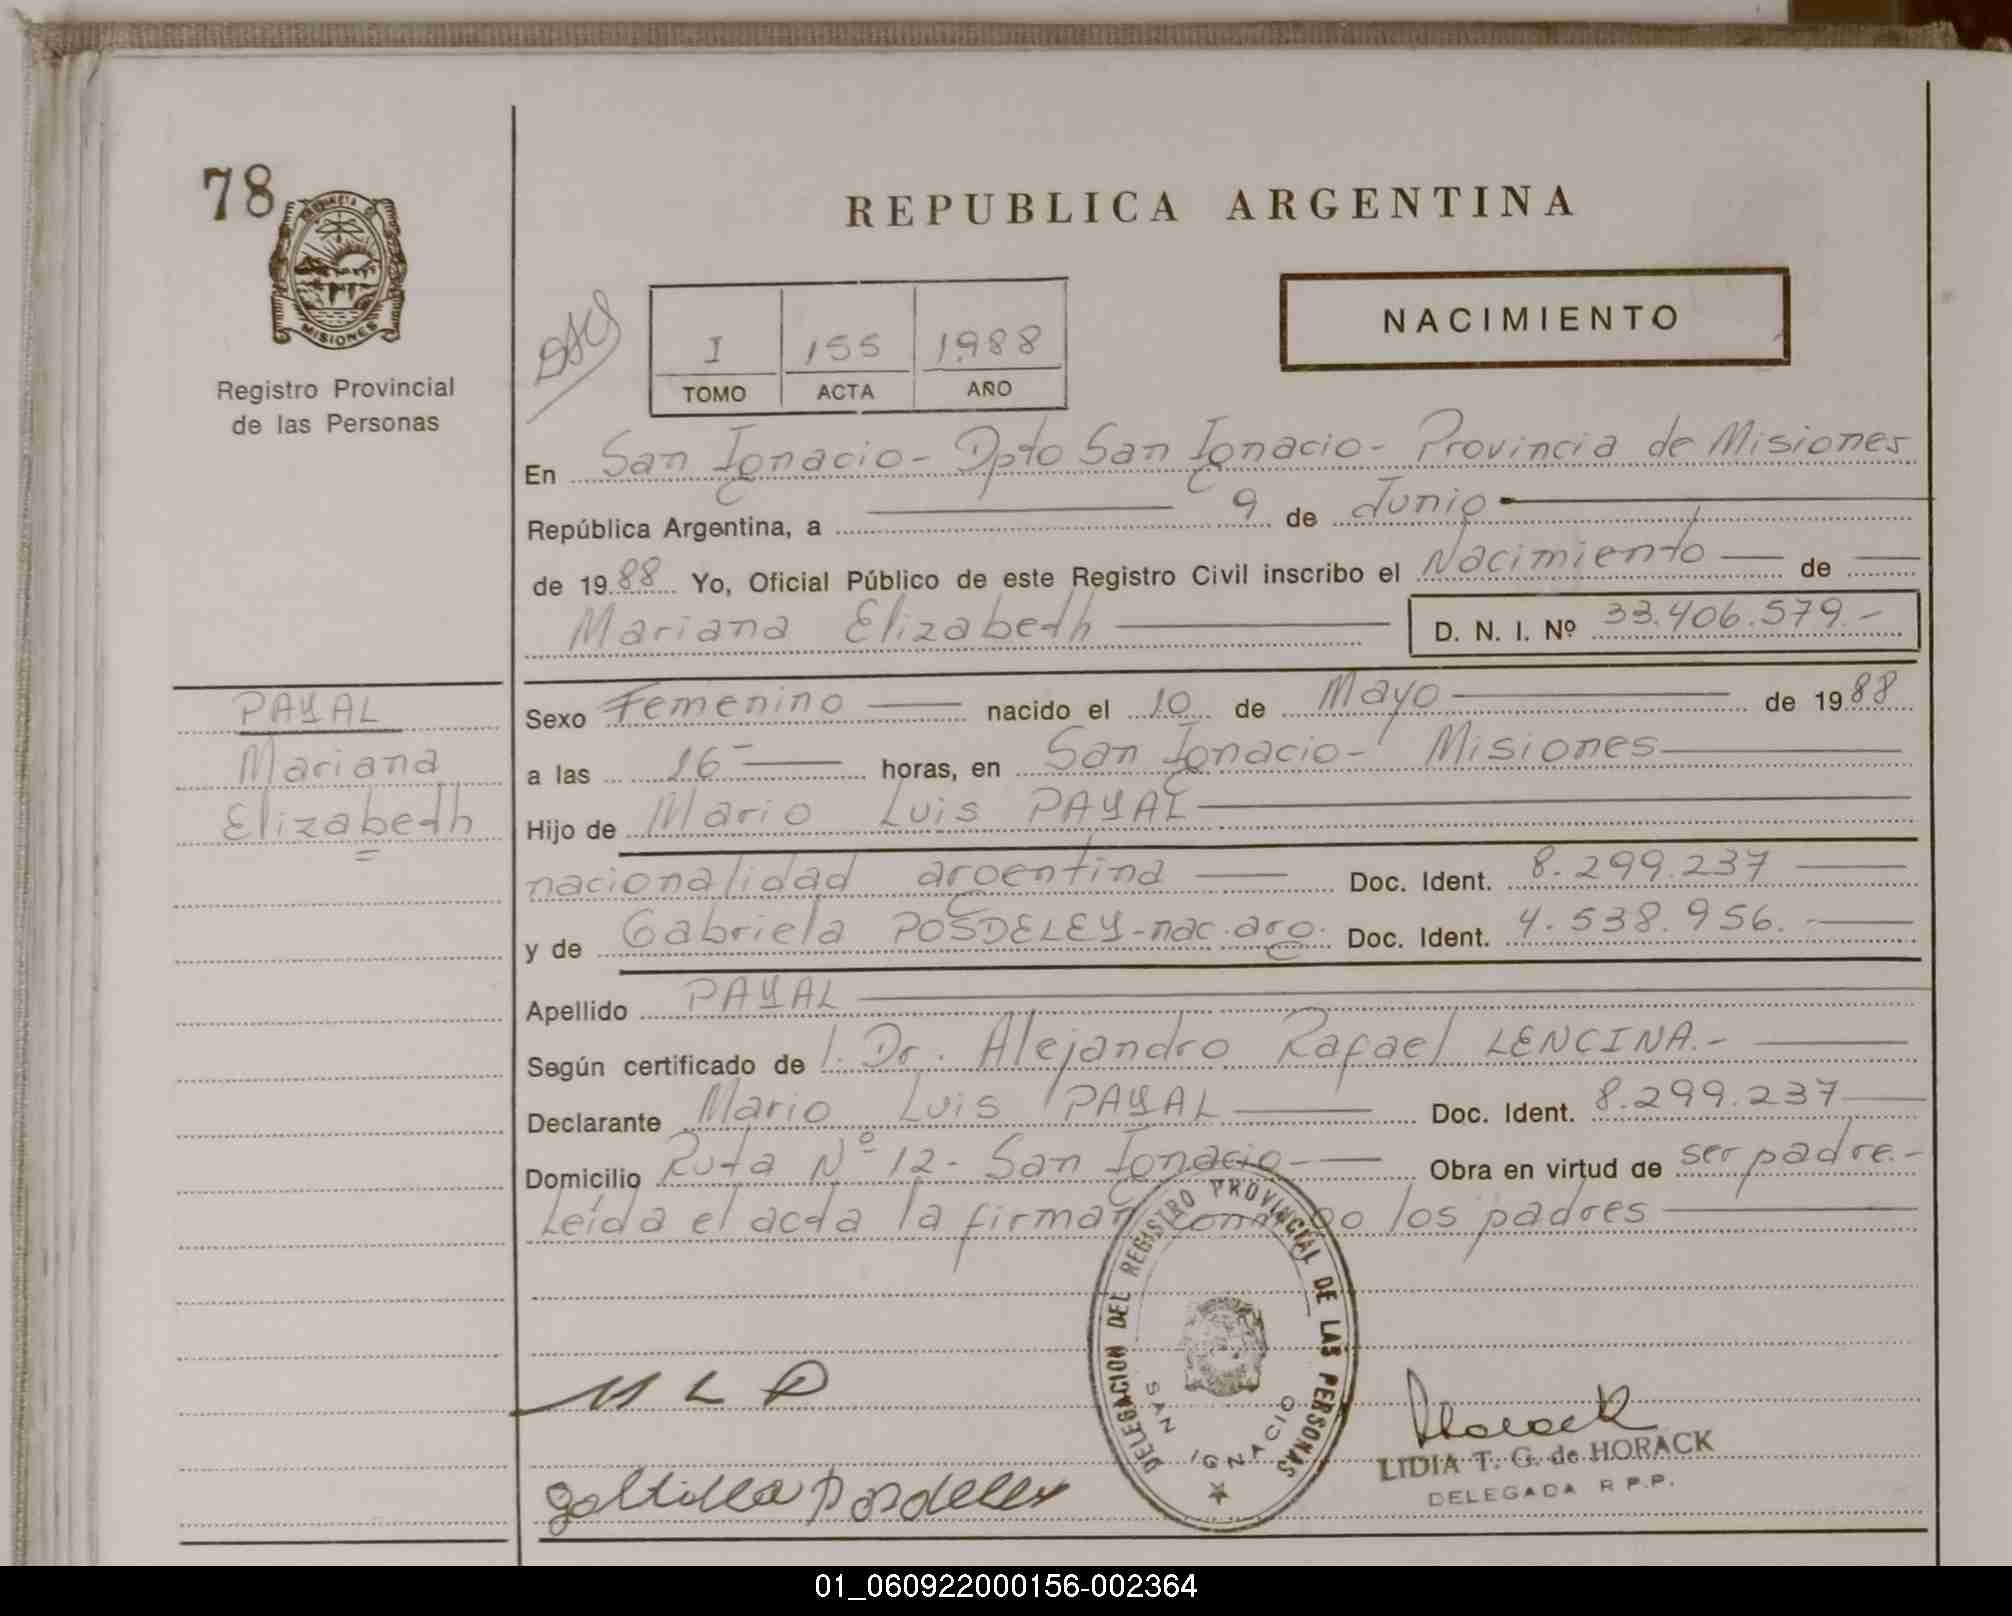 78
PROVINCIA DE
MISIONES
Registro Provincial
de las Personas
REPUBLICA ARGENTINA
NACIMIENTO
I 155 1.988
TOMO ACTA AÑO
En San Ignacio - Dpto San Ignacio - Provincia de Misiones
República Argentina, a 9 de Junio
de 19 88 Yo, Oficial Público de este Registro Civil inscribo el Nacimiento de
Mariana Elizabeth D. N. I. Nº 33.406.579.-
PAYAL
Mariana
Elizabeth
Sexo Femenino nacido el 10 de Mayo de 19 88
a las 16 horas, en San Ignacio - Misiones
Hijo de Mario Luis PAYAL
nacionalidad argentina Doc. Ident. 8.299.237
y de Gabriela POSDELEY - nac. arg. Doc. Ident. 4.538.956.
Apellido PAYAL
Según certificado de l. Dr. Alejandro Rafael LENCINA.-
Declarante Mario Luis PAYAL Doc. Ident. 8.299.237
Domicilio Ruta Nº 12 - San Ignacio Obra en virtud de ser padre.-
Leída el acta la firman conmigo los padres
DELEGACION DEL REGISTRO PROVINCIAL DE LAS PERSONAS
SAN IGNACIO
M L P
Horack
LIDIA T. G. de HORACK
DELEGADA R P.P.
01_060922000156-002364